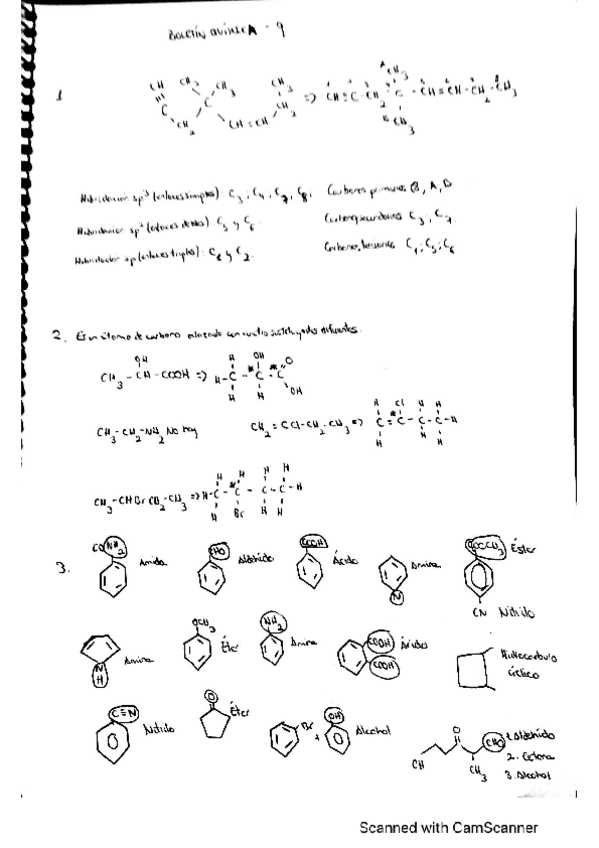 BOLETÍN QUÍMICA - 9
1
CH CH3 CH3 CH3 => CH≡C-CH2-C-CH=CH-CH2-CH3
CH C CH2 CH3
CH2 CH=CH CH3
Hibridación sp3 (enlaces simples): C3, C4, C7, C8, Carbonos primarios B, A, D
Hibridación sp2 (enlaces dobles): C5 y C6. Carbonos secundarios C3, C7.
Hibridación sp (enlaces triples): C y C2. Carbonos terciarios C1, C5, C6
2. Es un átomo de carbono enlazado con cuatro sustituyentes diferentes.
OH H OH O
CH3-CH-COOH => H-C-C*-C*
H H OH
CH3-CH2-NH2 No hay CH2=CCl-CH2-CH3 => H Cl H H
C=C-C-C-H
H H H
H H H H
CH3-CHBrCH2-CH3 => H-C-C*-C-C-H
H Br H H
3. CONH2 Amida CHO Aldehído COOH Ácido N Amina COOCH3 Éster
CN Nitrido
N H Amina OCH3 Éter NH2 Amina COOH COOH Ácido Hidrocarburo cíclico
C≡N Nitrido O Éter Br + OH Alcohol O CHO 1. Aldehído
2. Cetona
OH CH3 3. Alcohol
Scanned with CamScanner